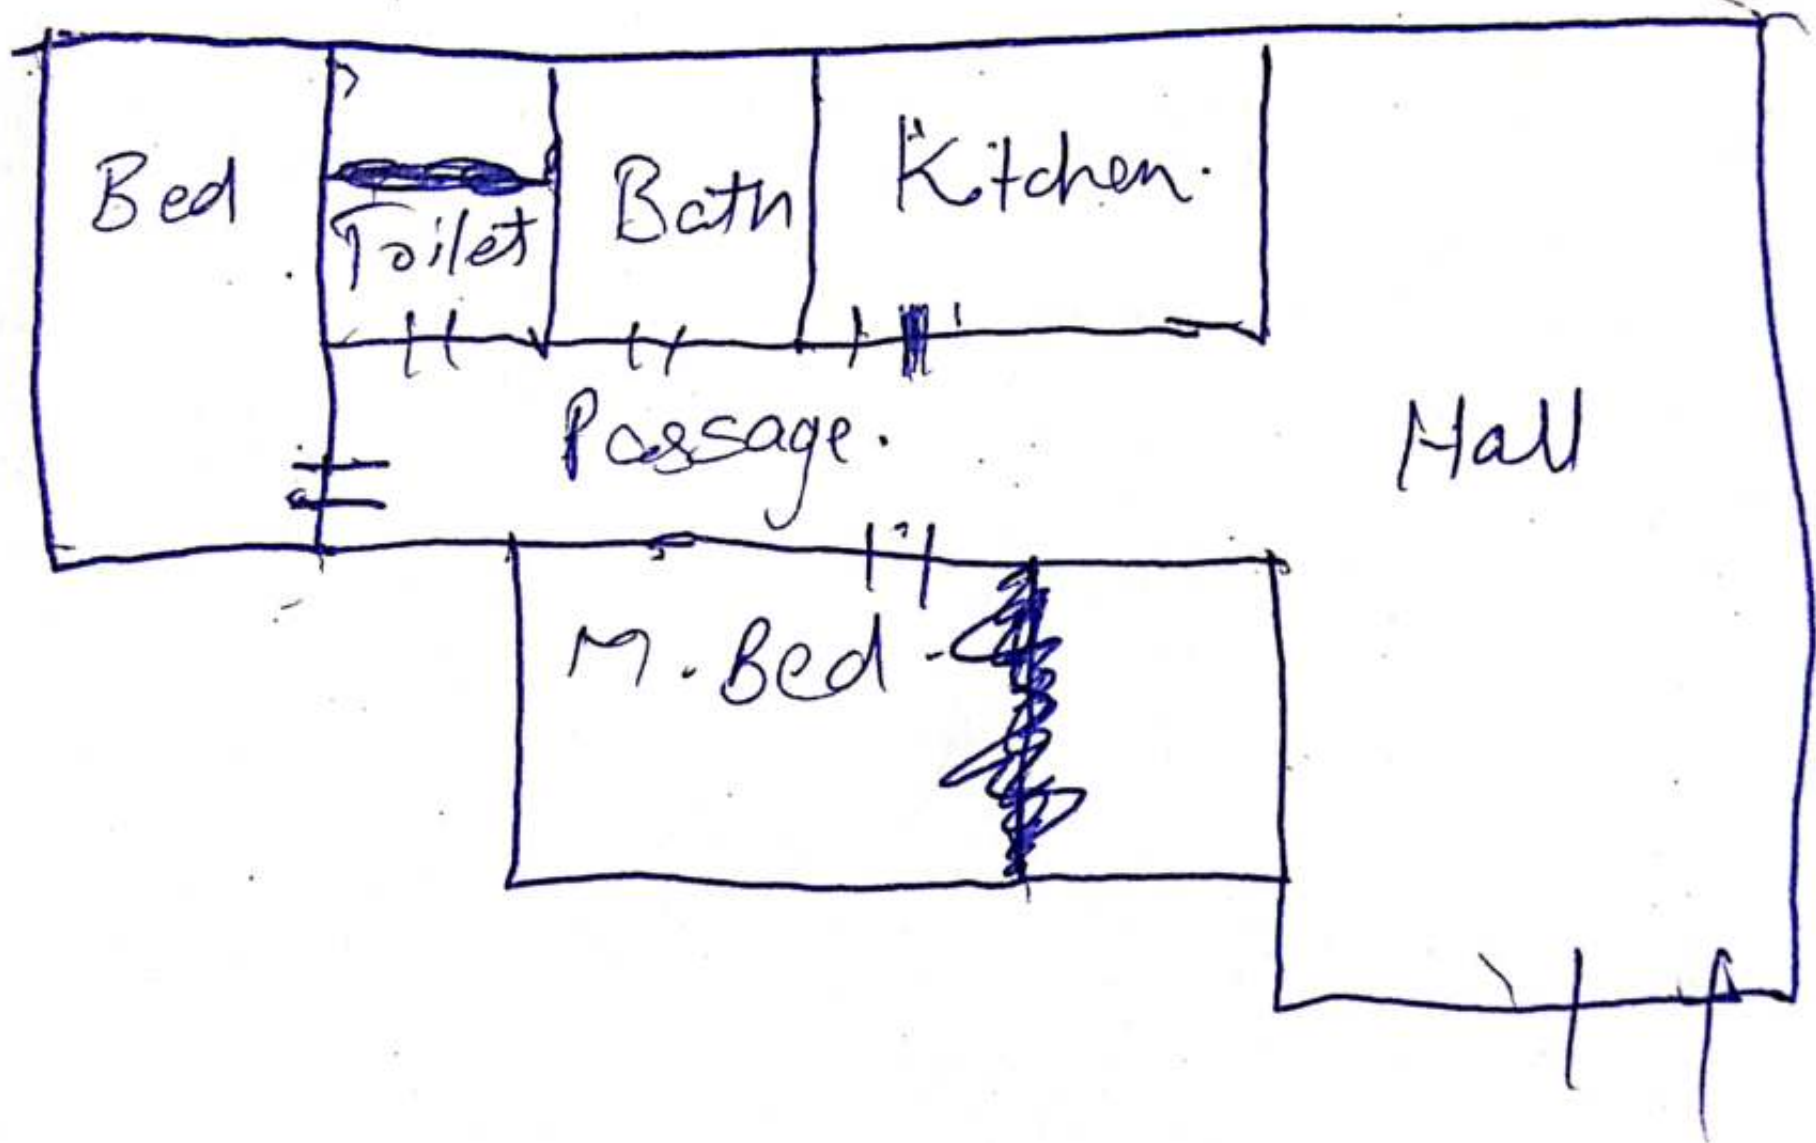 Bed
Toilet
Bath
Kitchen.
Passage.
Hall
M. Bed